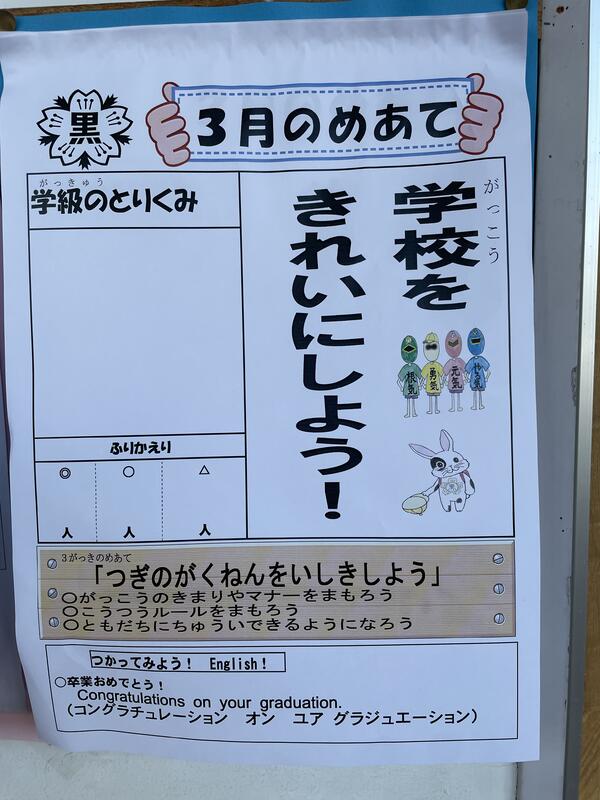 黒
3月のめあて
がっこう
学校を
きれいにしよう!
根気
勇気
元気
やる気
がっきゅう
学級のとりくみ
ふりかえり
◎ ○ △
人 人 人
3がっきのめあて
「つぎのがくねんをいしきしよう」
○がっこうのきまりやマナーをまもろう
○こうつうルールをまもろう
○ともだちにちゅういできるようになろう
つかってみよう! English!
○卒業おめでとう!
Congratulations on your graduation.
(コングラチュレーション オン ユア グラジュエーション)